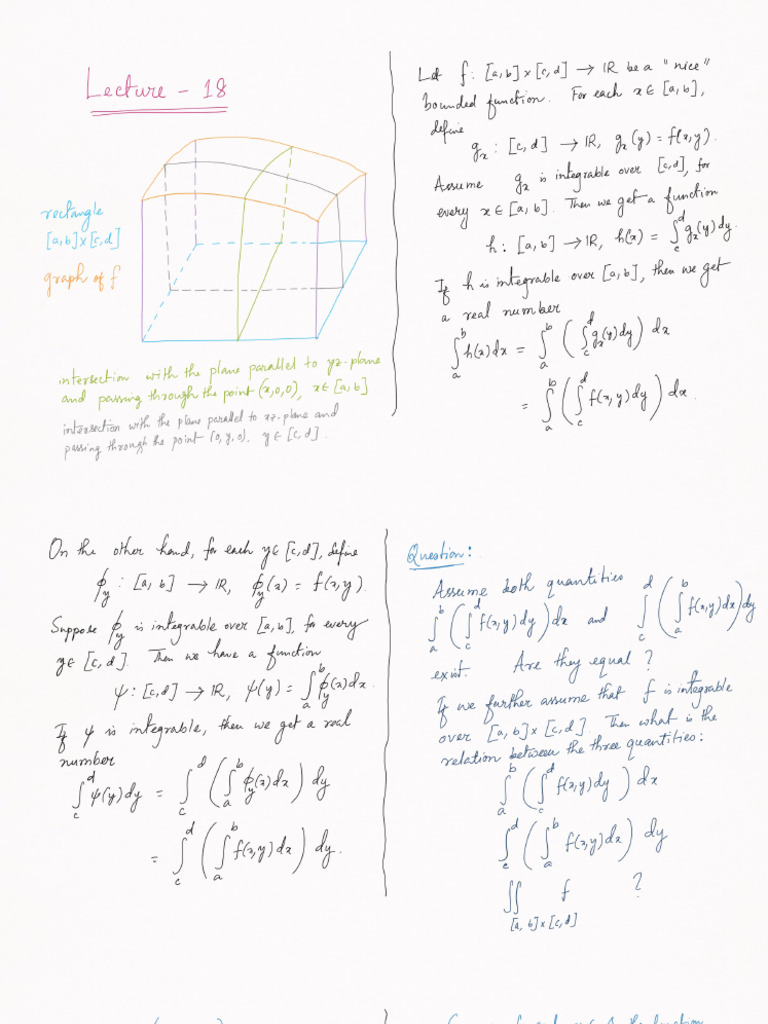 Lecture - 18
rectangle
[a,b]x[c,d]
graph of f
intersection with the plane parallel to yz-plane
and passing through the point (x,0,0), x∈[a,b]
intersection with the plane parallel to xz-plane and
passing through the point (0,y,0), y∈[c,d].
Let f: [a,b]x[c,d] → IR be a "nice"
bounded function. For each x∈[a,b],
define
g_x : [c,d] → IR, g_x(y) = f(x,y).
Assume g_x is integrable over [c,d], for
every x∈[a,b]. Then we get a function
h: [a,b] → IR, h(x) = ∫_c^d g_x(y)dy.
If h is integrable over [a,b], then we get
a real number
∫_a^b h(x)dx = ∫_a^b (∫_c^d g_x(y)dy) dx
= ∫_a^b (∫_c^d f(x,y)dy) dx.
On the other hand, for each y∈[c,d], define
ϕ_y : [a,b] → IR, ϕ_y(x) = f(x,y).
Suppose ϕ_y is integrable over [a,b], for every
y∈[c,d]. Then we have a function
ψ: [c,d] → IR, ψ(y) = ∫_a^b ϕ_y(x)dx.
If ψ is integrable, then we get a real
number
∫_c^d ψ(y)dy = ∫_c^d (∫_a^b ϕ_y(x)dx) dy
= ∫_c^d (∫_a^b f(x,y)dx) dy.
Question:
Assume both quantities
∫_a^b (∫_c^d f(x,y)dy)dx and ∫_c^d (∫_a^b f(x,y)dx)dy
exist. Are they equal?
If we further assume that f is integrable
over [a,b]x[c,d]. Then what is the
relation between the three quantities:
∫_a^b (∫_c^d f(x,y)dy) dx
∫_c^d (∫_a^b f(x,y)dx) dy
∬_[a,b]x[c,d] f ?